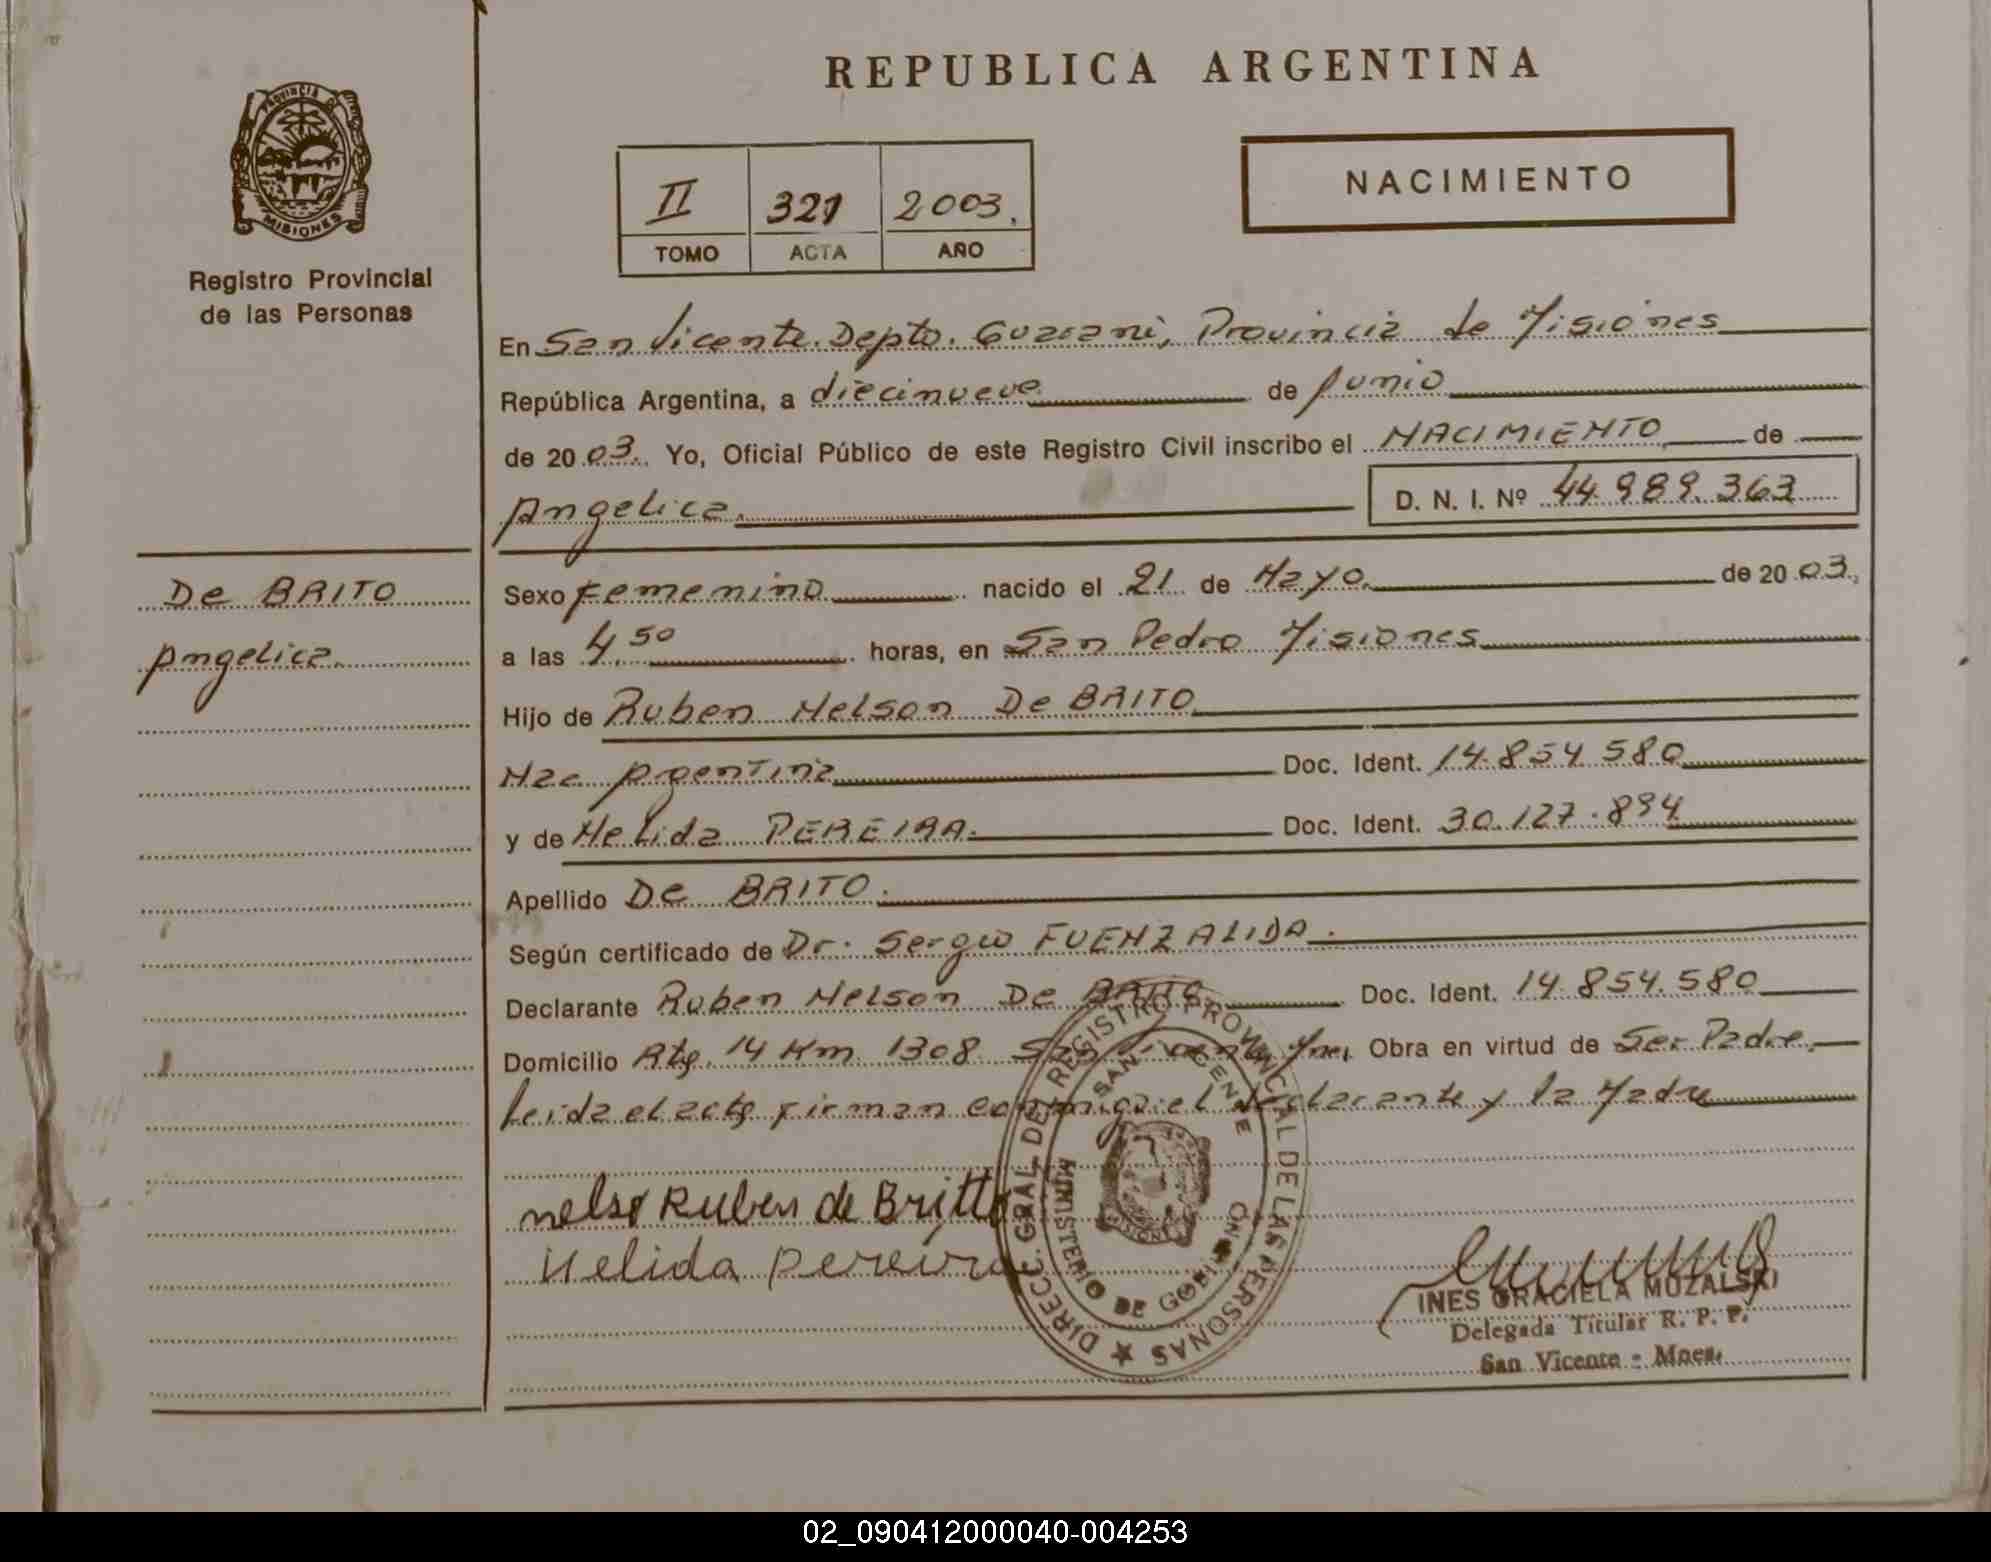 REPUBLICA ARGENTINA
PROVINCIA DE
MISIONES
Registro Provincial
de las Personas
II 321 2003.
TOMO ACTA AÑO
NACIMIENTO
En San Vicente. Depto. Guarani, Provincia de Misiones
República Argentina, a diecinueve de Junio
de 2003. Yo, Oficial Público de este Registro Civil inscribo el NACIMIENTO de
Angelica. D. N. I. Nº 44.989.363
De BRITO
Angelica.
Sexo Femenino nacido el 21 de Mayo. de 2003.
a las 4,50 horas, en San Pedro Misiones
Hijo de Ruben Nelson De BRITO
Nac Argentina Doc. Ident. 14.854.580
y de Nelida PEREIRA. Doc. Ident. 30.127.894
Apellido De BRITO.
Según certificado de Dr. Sergio FUENZALIDA.
Declarante Ruben Nelson De BRITO. Doc. Ident. 14.854.580
Domicilio Rta. 14 Km 1308 San Vicente Mnes, Obra en virtud de Ser Padre.
Leida el acta firman conmigo el declarante y la Madre
nelso Ruben de Britto
Nelida Pereira
DIRECC. GRAL. DEL REGISTRO PROVINCIAL DE LAS PERSONAS
SAN VICENTE
MINISTERIO DE GOBIERNO
MISIONES
INES GRACIELA MUZALSKI
Delegada Titular R. P. P.
San Vicente - Mnes.
02_090412000040-004253